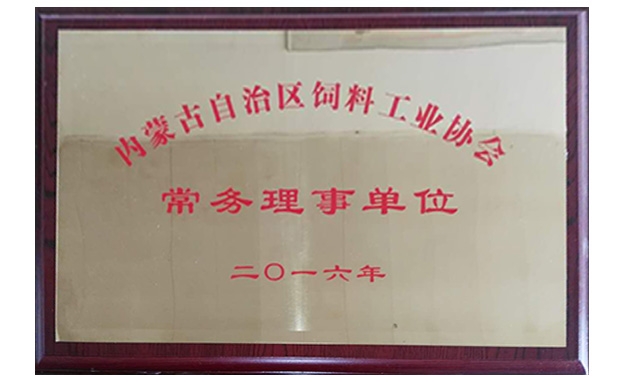 内蒙古自治区饲料工业协会
常务理事单位
二〇一六年